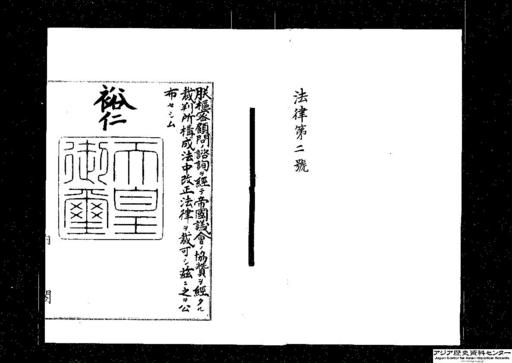 法律第二號
朕樞密顧問ノ諮詢ヲ經テ帝國議會ノ協賛ヲ經タル
裁判所構成法中改正法律ヲ裁可シ茲ニ之ヲ公
布セシム
裕仁
天皇
御璽
内
閣
アジア歴史資料センター
Japan Center for Asian Historical Records